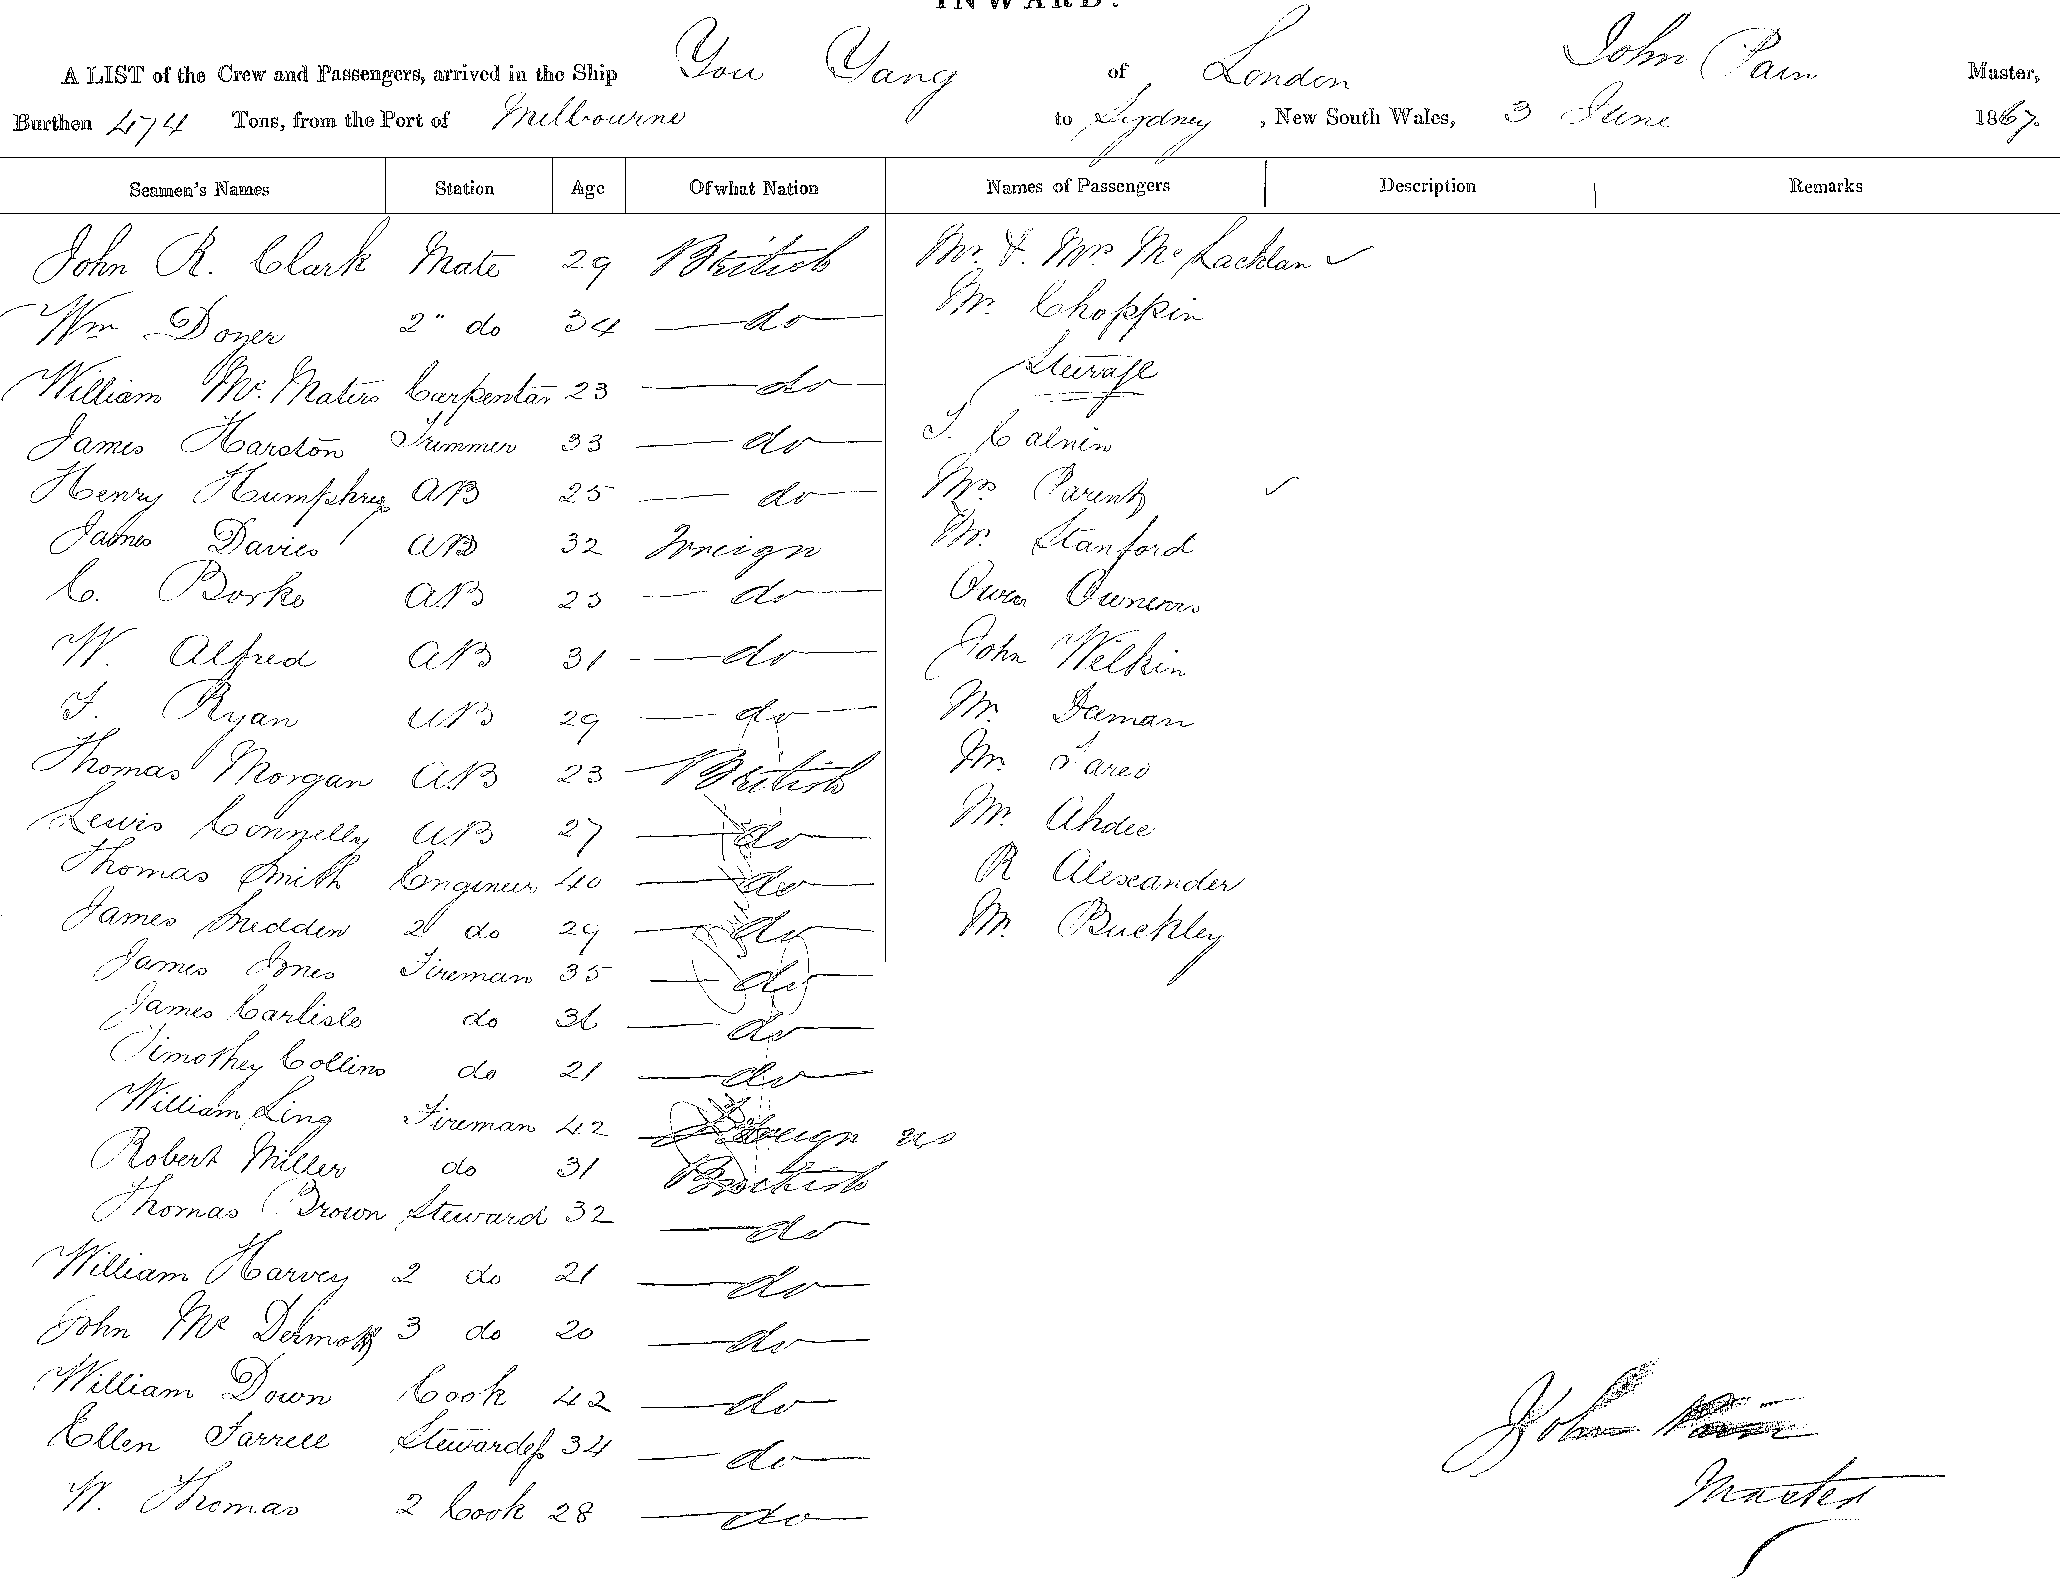 INWARD.
A LIST of the Crew and Passengers, arrived in the Ship You Yang of London John Pain Master,
Burthen 474 Tons, from the Port of Melbourne to Sydney, New South Wales, 3 June 1867.
Seamen's Names Station Age Of what Nation Names of Passengers Description Remarks
John R. Clark Mate 29 British Mr. & Mrs McLachlan ✓
Wm Doner 2" do 34 — do — Mr. Choppin
William Mc. Maters Carpenter 23 — do — Steerage
James Harston Trimmer 33 — do — T. Calnin
Henry Humphries AB 25 — do Mrs Parent ✓
James Davies AB 32 Foreign Mr. Stanford
C. Borke AB 23 — do — Owen
W. Alfred AB 31 — do — John Welkin
T. Ryan AB 29 — do — Mr. Deeman
Thomas Morgan AB 23 British Mr.
Lewis Connelly AB 27 — do — Mr. Ahdee
Thomas Smith Engineer 40 — do — R Alexander
James Snedden 2 do 29 — do — Mr. Buckley
James Jones Fireman 35 — do —
James Carlisle do 36 — do —
Timothey Collins do 21 — do —
William Ling Fireman 42 Foreign
Robert Miller do 31 British
Thomas Brown Steward 32 — do —
William Harvey 2 do 21 — do —
John Mc Dermott 3 do 20 — do —
William Down Cook 42 — do —
Ellen Farrell Stewardess 34 — do —
W. Thomas 2 Cook 28 — do —
John Pain
Master